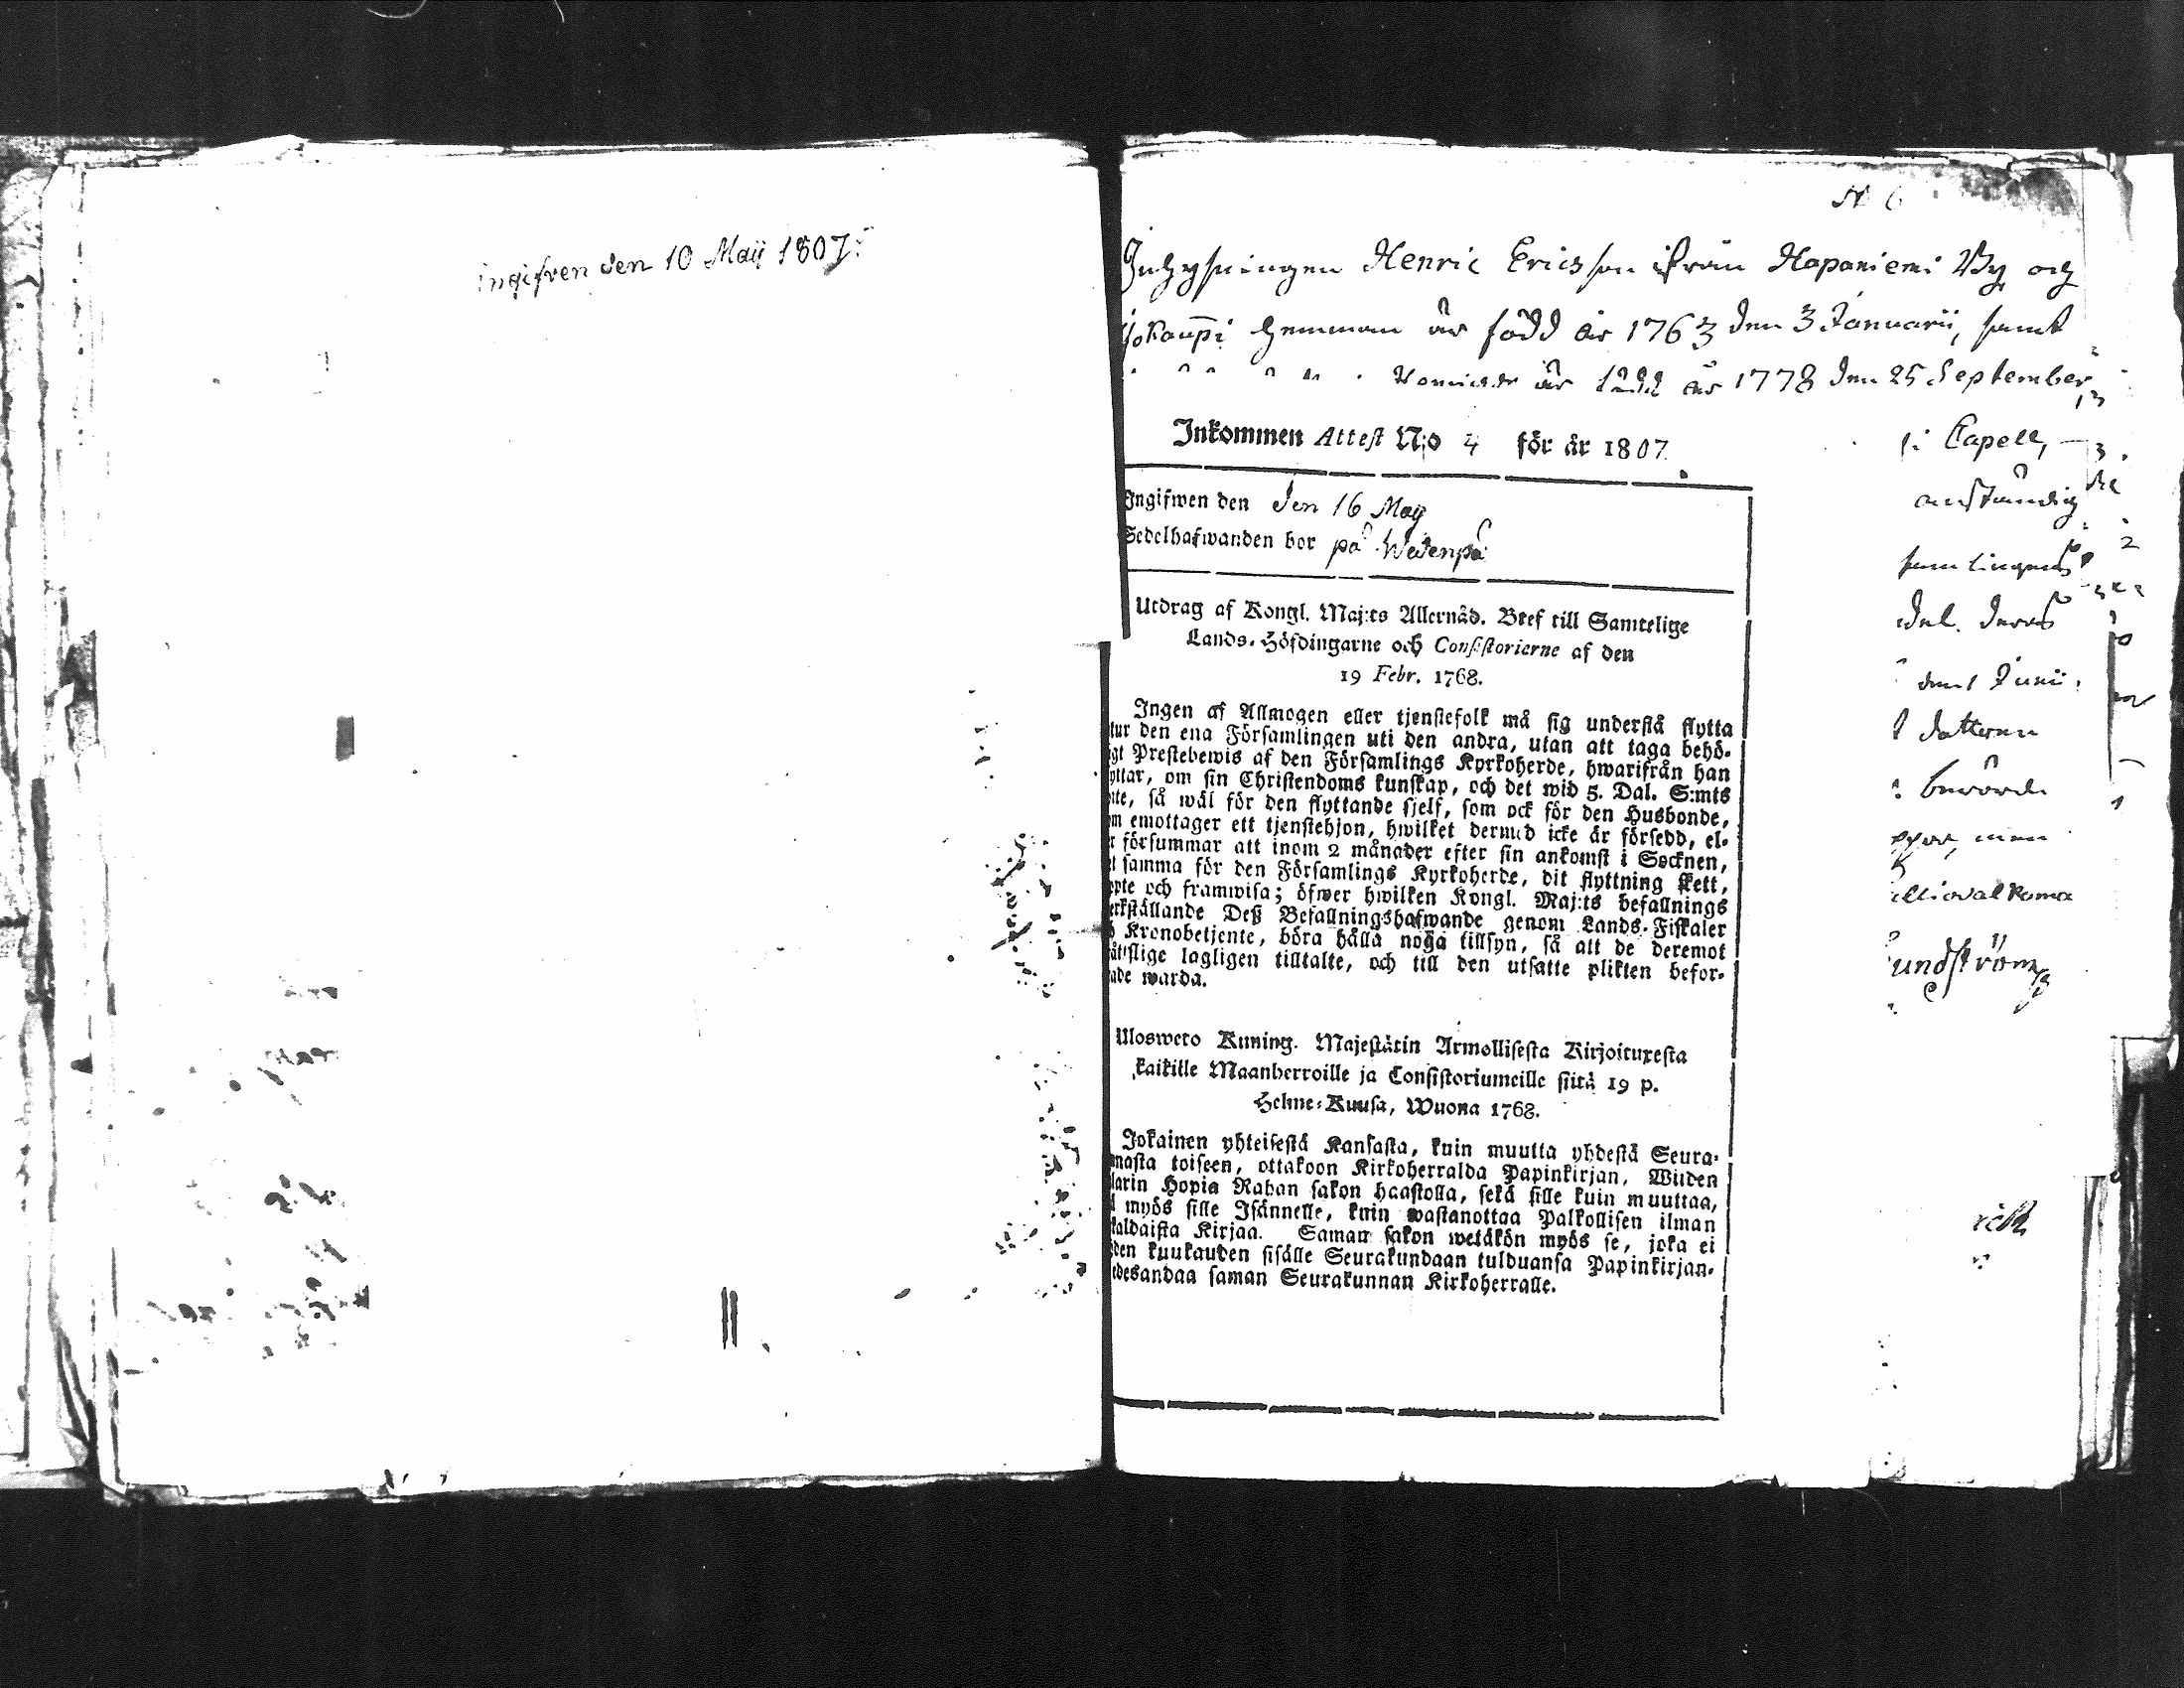 ingifven den 10 Maij 1807.
N 6
Inhysningen Henric Ericsson ifrån Hapaniemi By och
Jokaupi hemman är född år 1763 den 3 Januarii, samt
är född år 1778 den 25 September
Inkommen Attest N:o 4 för år 1807.
Ingifwen den den 16 Maij
Sedelhafwanden bor på Wedenpä
Utdrag af Kongl. Maj:ts Allernåd. Bref till Samtelige
Lands-Höfdingarne och Consistorierne af den
19 Febr. 1768.
Ingen af Allmogen eller tjenstefolk må sig understå flytta
ur den ena Församlingen uti den andra, utan att taga behö-
gt Prestebewis af den Församlings Kyrkoherde, hwarifrån han
yttar, om sin Christendoms kunskap, och det wid 5. Dal. S:mts
ite, så wäl för den flyttande sjelf, som ock för den Husbonde,
m emottager ett tjenstehjon, hwilket dermed icke är försedd, el-
r försummar att inom 2 månader efter sin ankomst i Socknen,
t samma för den Församlings Kyrkoherde, dit flyttning skett,
pte och framwisa; öfwer hwilken Kongl. Maj:ts befallnings
erkställande Deß Befallningshafwande genom Lands-Fiskaler
Kronobetjente, böra hålla noga tillsyn, så att de deremot
åtslige lagligen tilltalte, och till den utsatte plikten befor-
ade warda.
Ulosweto Kuning. Majestätin Armollisesta Kirjoituxesta
kaikille Maanherroille ja Consistoriumeille siitä 19 p.
Helme-Kuusa, Wuona 1768.
Jokainen yhteisestä Kansasta, kuin muutta yhdestä Seura-
nasta toiseen, ottakoon Kirkoherralda Papinkirjan, Wiiden
larin Hopia Rahan sakon haastolla, sekä sille kuin muuttaa,
myös sille Isännelle, kuin wastanottaa Palkollisen ilman
kaldaista Kirjaa. Saman sakon wetäkön myös se, joka ei
den kuukauden sisälle Seurakundaan tulduansa Papinkirjan-
edesandaa saman Seurakunnan Kirkoherralle.
Capell,
anständig
del. deras
den 1 Junii.
dottren
men
undström